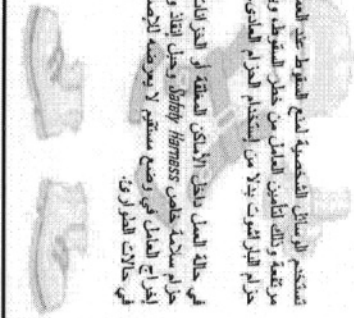 تستخدم الوسائل الشخصية لمنع السقوط عند العمل
مرتفعة وذلك لتأمين العامل من خطر السقوط، ويـ
حزام الباراشوت بدلا من إستخدام الحزام العادى.
في حالة العمل داخل الأماكن المغلقة أو الخزانات
حزام سلامة خاص Safety Harness وحبل إنقاذ و
إخراج العامل في وضع مستقيم لا يعرضه للإصـ
في حالات الطوارئ.